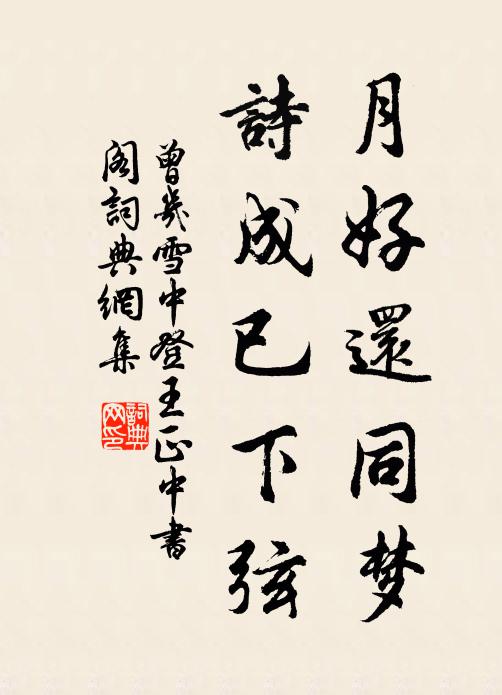 月好還同梦
詩成已下弦
曾幾雪中登王正中書
閣詞典網集
詞典
网印